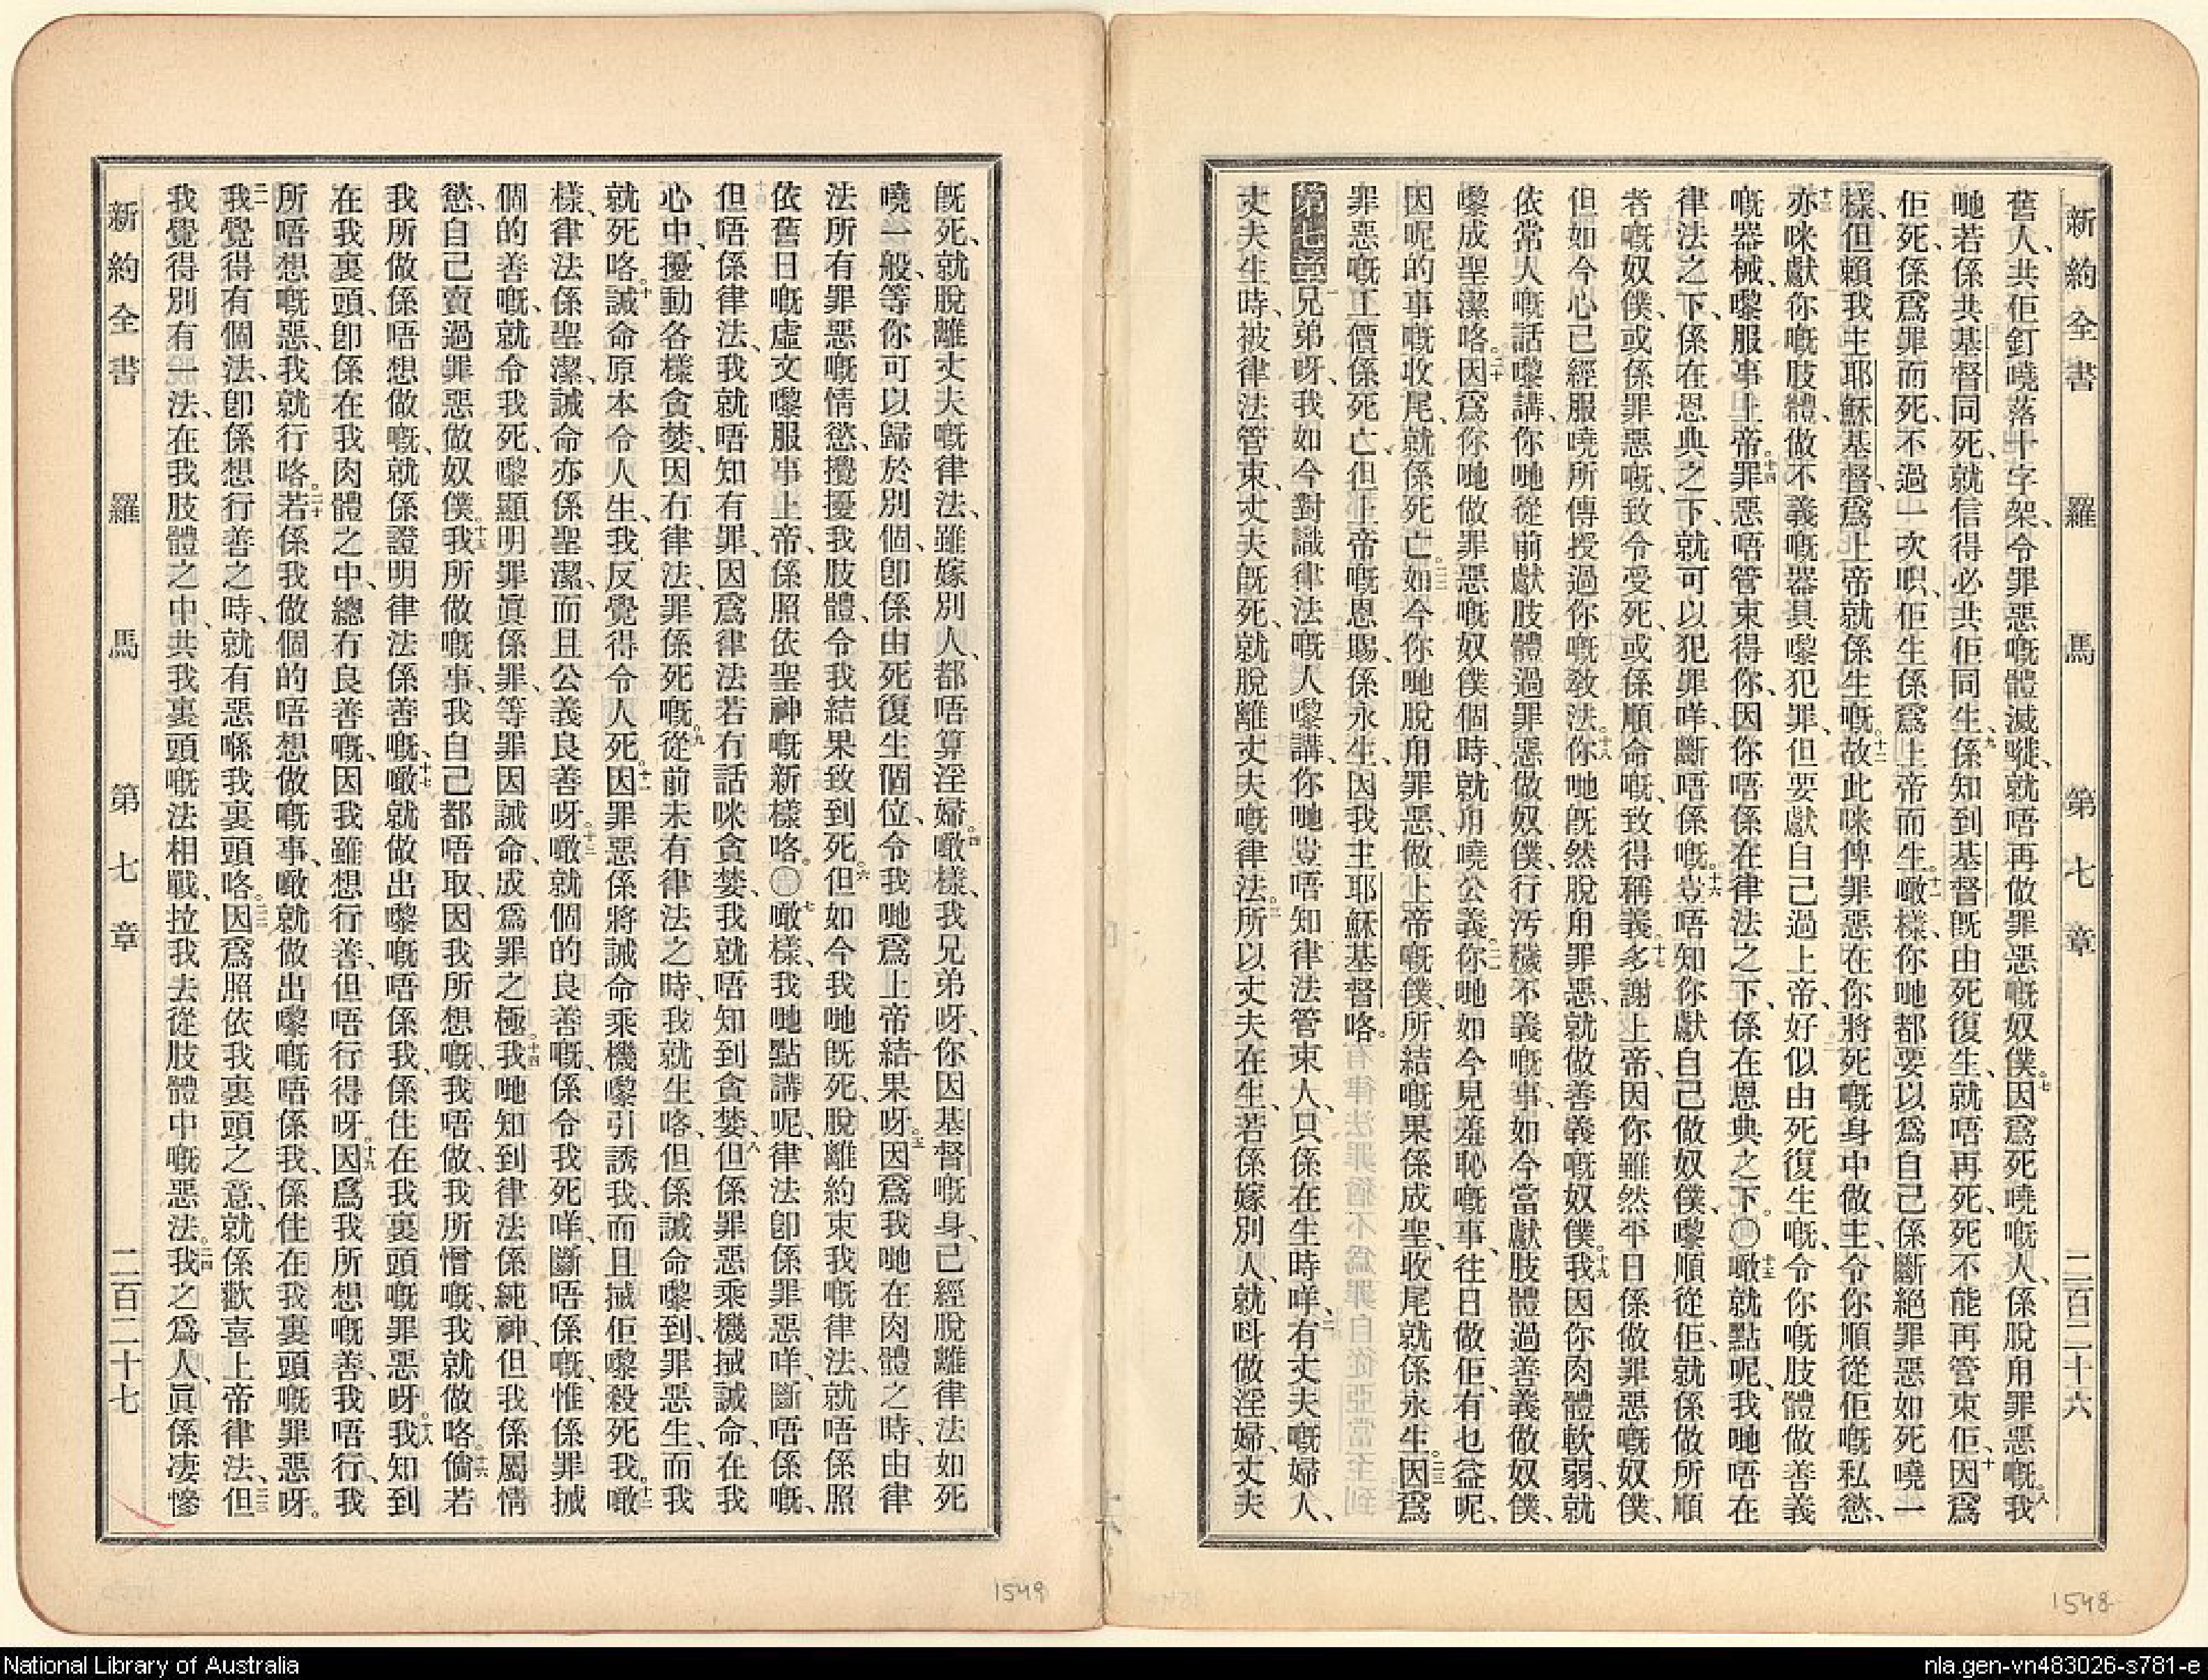 新約全書 羅馬 第七章 二百二十六
舊人、共佢釘曉落十字架、令罪惡嘅體滅㽼、就唔再做罪惡嘅奴僕。七因爲死曉嘅人、係脫甩罪惡嘅。八我
哋若係共基督同死、就信得必共佢同生、九係知到基督旣由死復生、就唔再死、死不能再管束佢、十因爲
佢死、係爲罪而死、不過一次㖭、佢生係爲上帝而生。十一噉樣、你哋都要以爲自己係斷絕罪惡如死曉一
樣、但賴我主耶穌基督、爲上帝就係生嘅。十二故此咪俾罪惡在你將死嘅身中做主、令你順從佢嘅私慾、
十三亦咪獻你嘅肢體、做不義嘅器具嚟犯罪、但要獻自己過上帝、好似由死復生嘅、令你嘅肢體做善義
嘅器械、嚟服事上帝。十四罪惡唔管束得你、因你唔係在律法之下、係在恩典之下。〇十五噉就點呢、我哋唔在
律法之下、係在恩典之下、就可以犯罪咩、斷唔係嘅。十六豈唔知你獻自己做奴僕、嚟順從佢、就係做所順
者嘅奴僕、或係罪惡嘅、致令受死、或係順命嘅、致得稱義。十七多謝上帝、因你雖然平日係做罪惡嘅奴僕、
但如今心已經服曉所傳授過你嘅敎法。十八你哋旣然脫甩罪惡、就做善義嘅奴僕。十九我因你肉體軟弱、就
依常人嘅話嚟講、你哋從前獻肢體過罪惡做奴僕、行汚穢不義嘅事、如今當獻肢體過善義做奴僕、
嚟成聖潔咯。二十因爲你哋做罪惡嘅奴僕個時、就甩曉公義。二一你哋如今見羞恥嘅事、往日做佢、有乜益呢、
因呢的事嘅收尾、就係死亡。二二如今你哋脫甩罪惡、做上帝嘅僕、所結嘅果係成聖、收尾就係永生。二三因爲
罪惡嘅工價係死亡、但上帝嘅恩賜、係永生、因我主耶穌基督咯。
第七章 一兄弟呀、我如今對識律法嘅人嚟講、你哋豈唔知律法管束人、只係在生時咩、二有丈夫嘅婦人、
丈夫生時、被律法管束、丈夫旣死、就脫離丈夫嘅律法。三所以丈夫在生、若係嫁別人、就呌做淫婦、丈夫
旣死、就脫離丈夫嘅律法、雖嫁別人、都唔算淫婦。四噉樣、我兄弟呀、你因基督嘅身、已經脫離律法如死
曉一般、等你可以歸於別個、卽係由死復生個位、令我哋爲上帝結果呀。五因爲我哋在肉體之時、由律
法所有罪惡嘅情慾、攪擾我肢體、令我結果致到死。六但如今我哋旣死、脫離約束我嘅律法、就唔係照
依舊日嘅虛文嚟服事上帝、係照依聖神嘅新樣咯。〇七噉樣、我哋點講呢、律法卽係罪惡咩、斷唔係嘅、
但唔係律法、我就唔知有罪、因爲律法若有話咪貪婪、我就唔知到貪婪、八但係罪惡乘機㨢誡命、在我
心中、擾動各樣貪婪、因冇律法、罪係死嘅。九從前未有律法之時、我就生咯、但係誡命嚟到、罪惡生、而我
就死咯。十誡命原本令人生、我反覺得令人死。十一因罪惡係將誡命乘機嚟引誘我、而且㨢佢嚟殺死我。十二噉
樣、律法係聖潔、誡命亦係聖潔、而且公義良善呀。十三噉就個的良善嘅、係令我死咩、斷唔係嘅、惟係罪㨢
個的善嘅、就令我死、嚟顯明罪眞係罪、等罪因誡命、成爲罪之極。十四我哋知到律法係純神、但我係屬情
慾、自己賣過罪惡做奴僕。十五我所做嘅事、我自己都唔取、因我所想嘅、我唔做、我所憎嘅、我就做咯。十六倘若
我所做係唔想做嘅、就係證明律法係善嘅、十七噉就做出嚟嘅唔係我、係住在我裏頭嘅罪惡呀。十八我知到
在我裏頭、卽係在我肉體之中、總冇良善嘅、因我雖想行善、但唔行得呀。十九因爲我所想嘅善、我唔行、我
所唔想嘅惡、我就行咯。二十若係我做個的唔想做嘅事、噉就做出嚟嘅唔係我、係住在我裏頭嘅罪惡呀。
二一我覺得有個法、卽係想行善之時、就有惡喺我裏頭咯。二二因爲照依我裏頭之意、就係歡喜上帝律法、二三但
我覺得別有一法、在我肢體之中、共我裏頭嘅法相戰、拉我去從肢體中嘅惡法。二四我之爲人、眞係凄慘
新約全書 羅馬 第七章 二百二十七
1549
1548
National Library of Australia
nla.gen-vn483026-s781-e